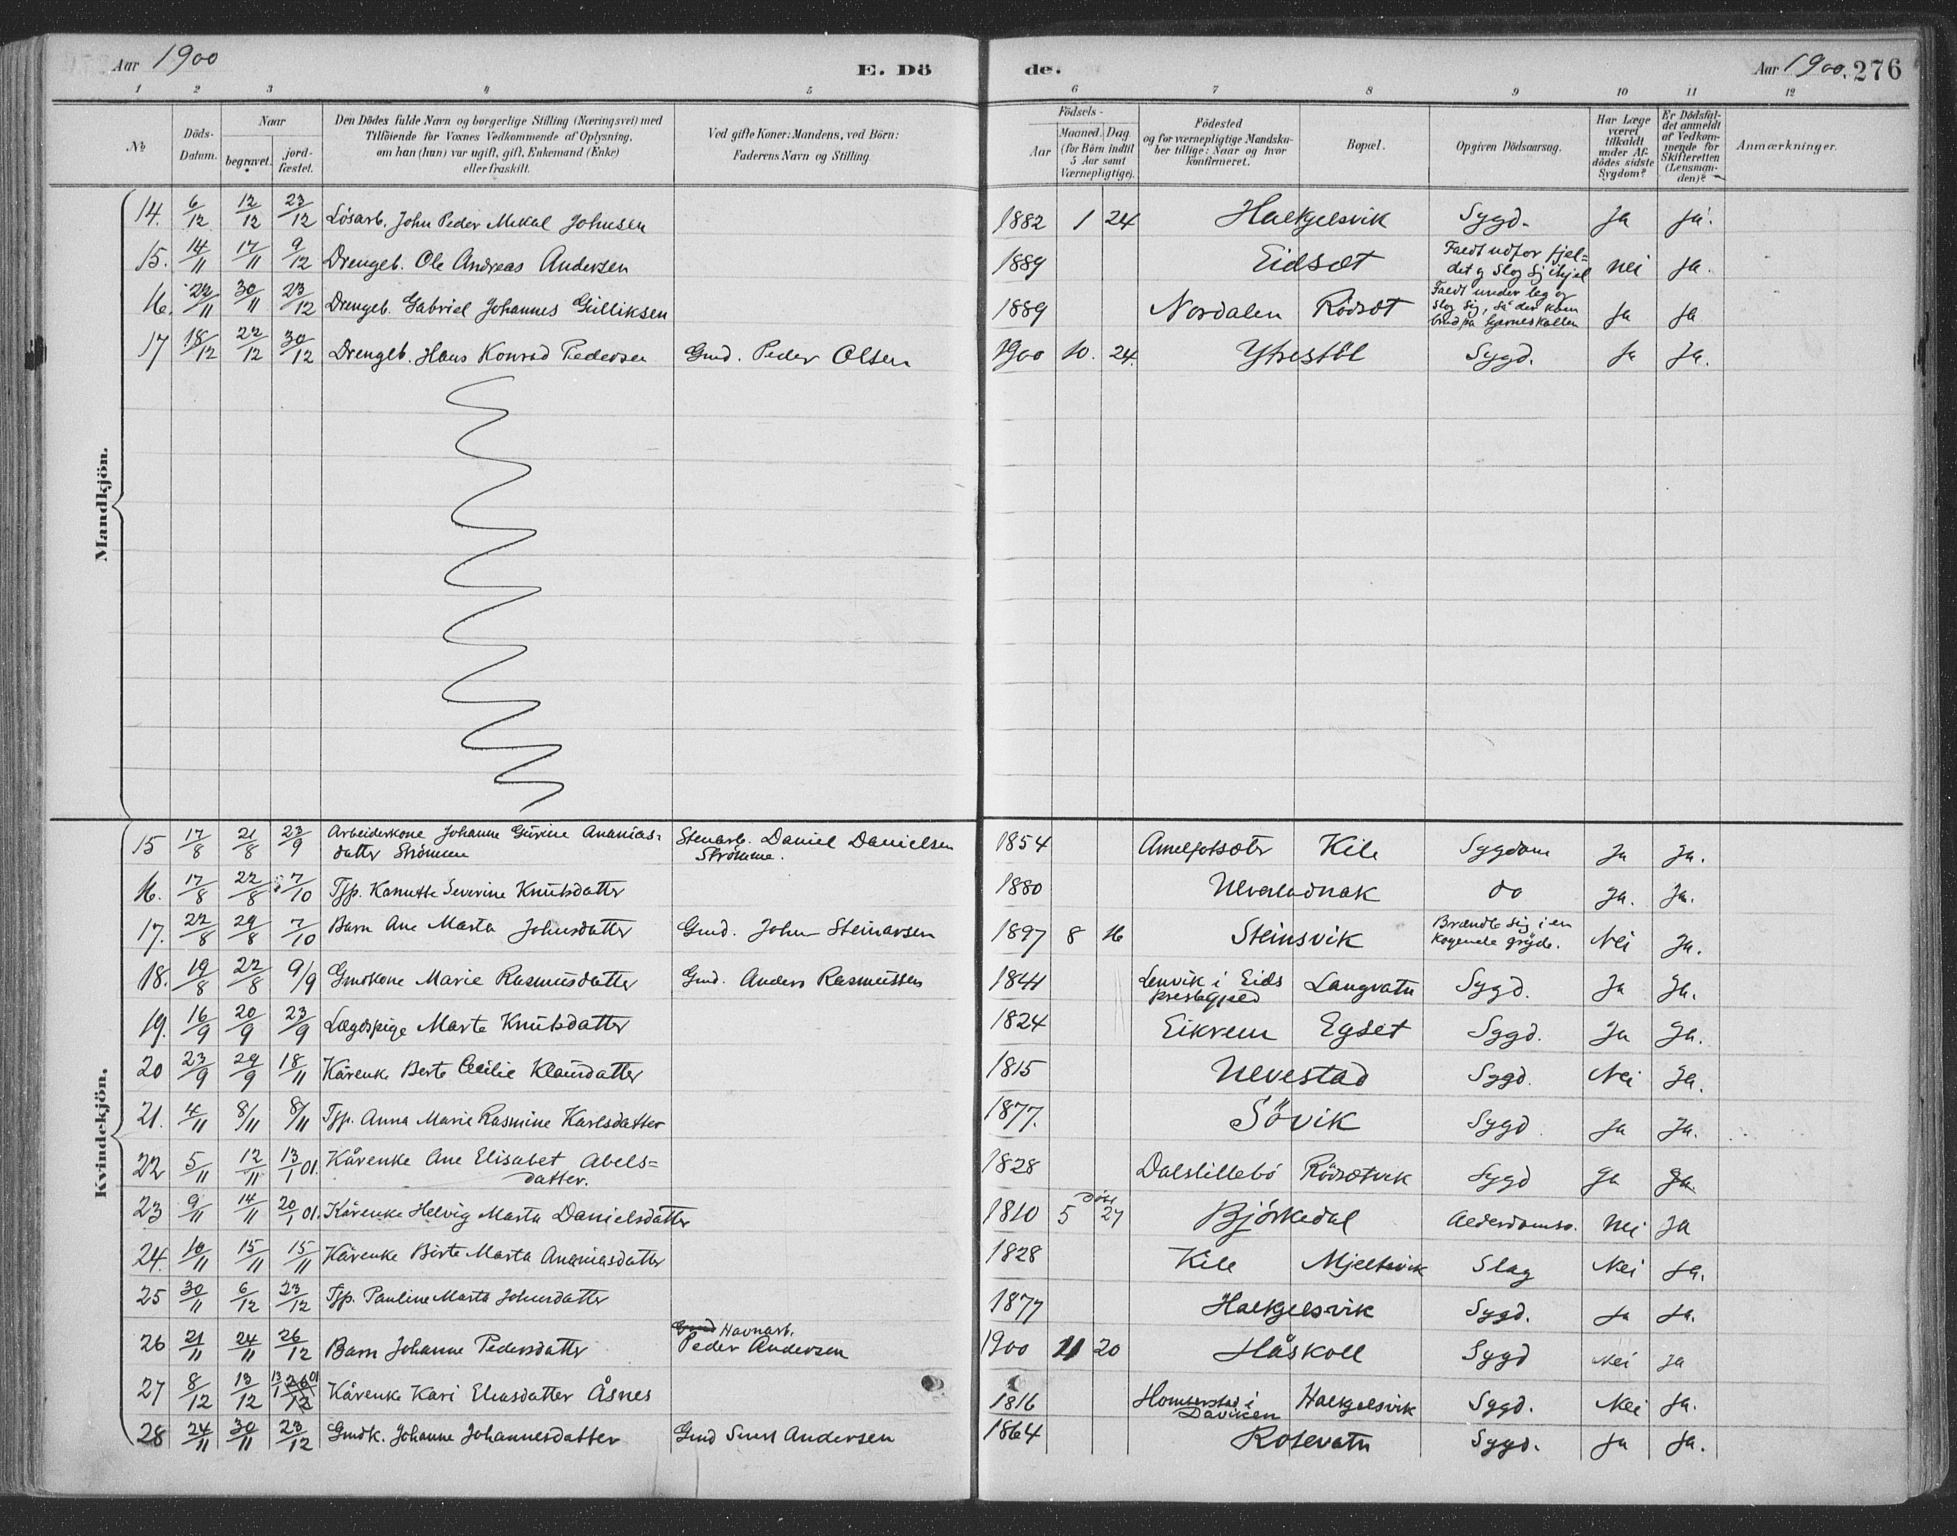 Aar 1900
E. Dö
de.
Aar 1900. 276
1 2 3 4 5 6 7 8 9 10 11 12
No
Döds-Datum.
Naar
begravet.
jord-fæstet.
Den Dödes fulde Navn og borgerlige Stilling (Næringsvei) med
Tilföiende for Voxnes Vedkommende af Oplysning,
om han (hun) var ugift, gift, Enkemand (Enke)
eller fraskilt.
Ved gifte Koner: Mandens, ved Börn:
Faderens Navn og Stilling.
Födsels-
Aar
Maaned. Dag
(for Börn indtil
5 Aar samt
Værnepligtige).
Födested
og for værnepligtige Mandska-
ber tillige: Naar og hvor
konfirmeret.
Bopæl.
Opgiven Dödsaarsag.
Har Læge
været
tilkaldt
under Af-
dödes sidste
Sygdom?
Er Dödsfal-
det anmeldt
af Vedkom-
mende for
Skifteretten
(Lensman-
den)?
Anmærkninger.
Mandkjön.
14. 6/12 12/12 23/12 Lösarb. John Peder Mikal Johnsen 1882 1 24 Halkjelsvik Sygd. Ja Ja.
15. 14/11 17/11 9/12 Drengeb. Ole Andreas Andersen 1889 Eidsæt Faldt udfor fjel-
det og slog sig ihjel nei Ja.
16. 22/11 30/11 23/12 Drengeb. Gabriel Johannes Gulliksen 1889 Nordalen Rödsæt Faldt under leg og
slog sig, så der kom
brud på hjerneskallen Ja Ja
17 18/12 22/12 30/12 Drengeb. Hans Konrad Pedersen Gmd. Peder Olsen 1900 10. 24. Ytrestöl Sygd. Ja Ja.
Kvindekjön.
15 17/8 21/8 23/9 Arbeiderkone Johanne Gurine Ananias-
datter Strömmen Stenarb. Daniel Danielsen
Strömme. 1854 Amelfotsæter Kile Sygdom Ja Ja.
16. 17/8 22/8 7/10 Tjp. Kanutte Severine Knutsdatter 1880 do Ja. Ja.
17. 22/8 29/8 7/10 Barn Ane Marta Johnsdatter Gmd. John Steinarsen 1897 8 16 Steinsvik Brændte sig i en
kogende gryde. Nei Ja.
18. 19/8 22/8 9/9 Gmdkone Marie Rasmusdatter Gmd. Anders Rasmussen 1844 Lenvik i Eids
prestegjeld Langvatn Sygd. Ja Ja.
19. 16/9 20/9 23/9 Lægdspige Marte Knutsdatter 1824 Eikrem Egset Sygd. Ja Ja.
20 23/9 29/9 18/11 Kårenke Berte Cecilie Klausdatter 1815 Ulvestad Sygd. Nei Ja.
21. 4/11 8/11 8/11 Tjp. Anna Marie Rasmine Karlsdatter 1877. Sövik Sygd. Ja Ja.
22 5/11 12/11 13/1 01. Kårenke Ane Elisabet Abels-
datter. 1828 Dalslillebö Rödsætvik Sygd Ja Ja.
23 9/11 14/11 20/1 01. Kårenke Helvig Marta Danielsdatter 1810 5 döbt 27 Björkedal Alderdomss. Nei Ja
24. 10/11 15/11 15/11 Kårenke Birte Marta Ananiasdatter 1828 Kile Mjeltevik Slag Nei Ja.
25 30/11 6/12 23/12 Tjp. Pauline Marta Johnsdatter 1877 Halkjelsvik Sygd. Ja Ja.
26 21/11 24/11 26/12 Barn Johanne Pedersdatter Gmd Havnarb.
Peder Andersen 1900 11 20 Håskoll Sygd Nei Ja
27 8/12 13/12 13/1 01 26/12 Kårenke Kari Eliasdatter Åsnes 1816 Hommerstad i
Daviken Halkjelsvik Sygd. Nei Ja.
28 24/11 30/11 23/12 Gmdk. Johanne Johannesdatter Gmd Andersen 1864 Rotevatn Sygd. Ja Ja.